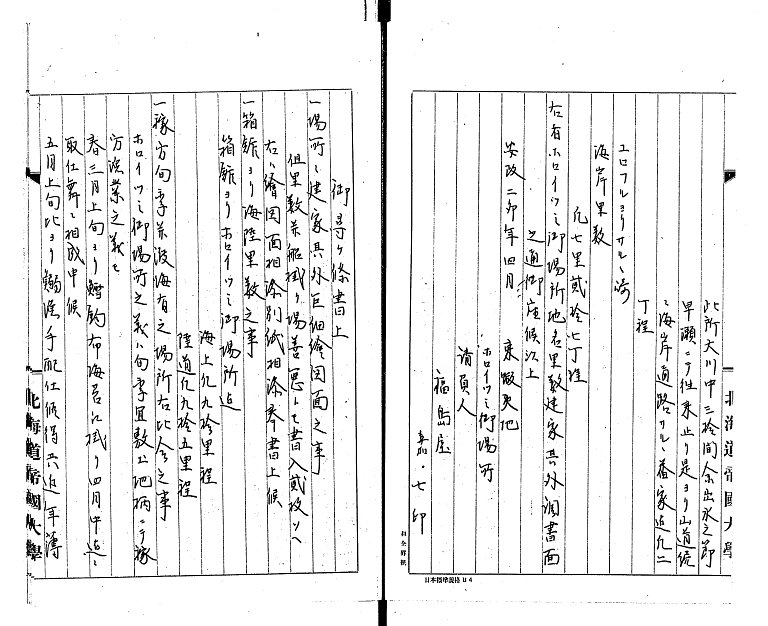 此所大川巾三拾間余出水之節
早瀬ニテ往来止リ是ヨリ山道続
ニ海岸通路サルヽ番家迄凡二
丁程
ヱロフルヨリサルヽ濱
海岸里数
凡七里貳拾七丁程
右者ホロイツミ御場所地名里数建家其外調書面
之通御座候以上
安政二卯年四月
東蝦夷地
ホロイツミ御場所
請負人
福島屋
嘉七印
北海道帝國大學
日本標準規格B4
御尋ヶ條書上
一場所ニ建家其外巨細繪図面之事
但里数并船掛リ場善悪トモ書入貳枚ツヽ
右ハ繪図面相添別紙相添奉書上候
一箱館ヨリ海陸里数之事
箱館ヨリホロイツミ御場所迄
海上凡九拾里程
陸道凡九拾五里程
一稼方旬季并渡海有之場所右比合之事
ホロイツミ御場所之義ハ旬季 土地柄ニテ稼
方漁業之義モ
春三月上旬ヨリ鱈釣布海苔ニ掛リ四月中迄ニ
取仕舞ニ相成申候
五月上旬比ヨリ 漁手配仕候得共近年薄
北海道帝國大學